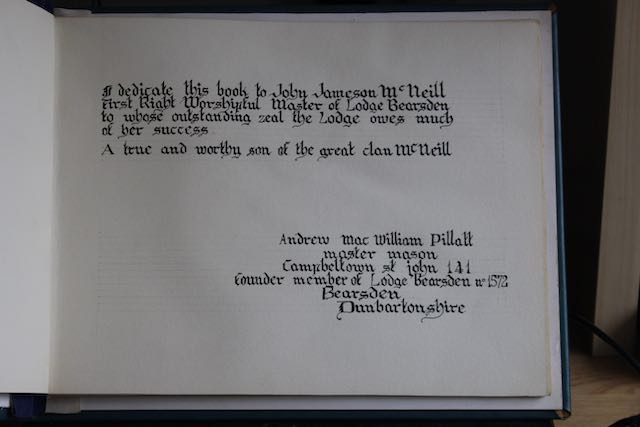 I dedicate this book to John Jameson McNeill
First Right Worshipful Master of Lodge Bearsden
to whose outstanding zeal the Lodge owes much
of her success
A true and worthy son of the great clan McNeill
Andrew Mac William Pillatt
master mason
Campbeltown st john 141
Founder member of Lodge Bearsden no 1572
Bearsden
Dunbartonshire